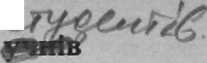 студентів.
учнів